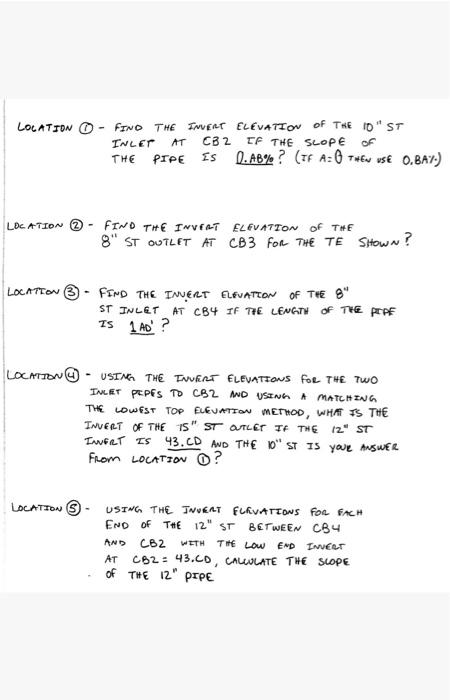 LOCATION ① - FIND THE INVERT ELEVATION OF THE 10" ST
INLET AT CB2 IF THE SLOPE OF
THE PIPE IS 0.AB%? (IF A=0 THEN USE 0.BA%)
LOCATION ② - FIND THE INVERT ELEVATION OF THE
8" ST OUTLET AT CB3 FOR THE TE SHOWN?
LOCATION ③ - FIND THE INVERT ELEVATION OF THE 8"
ST INLET AT CB4 IF THE LENGTH OF THE PIPE
IS 1AD'?
LOCATION ④ - USING THE INVERT ELEVATIONS FOR THE TWO
INLET PIPES TO CB2 AND USING A MATCHING
THE LOWEST TOP ELEVATION METHOD, WHAT IS THE
INVERT OF THE 15" ST OUTLET IF THE 12" ST
INVERT IS 43.CD AND THE 10" ST IS YOUR ANSWER
FROM LOCATION ①?
LOCATION ⑤ - USING THE INVERT ELEVATIONS FOR EACH
END OF THE 12" ST BETWEEN CB4
AND CB2 WITH THE LOW END INVERT
AT CB2 = 43.CD, CALCULATE THE SLOPE
OF THE 12" PIPE